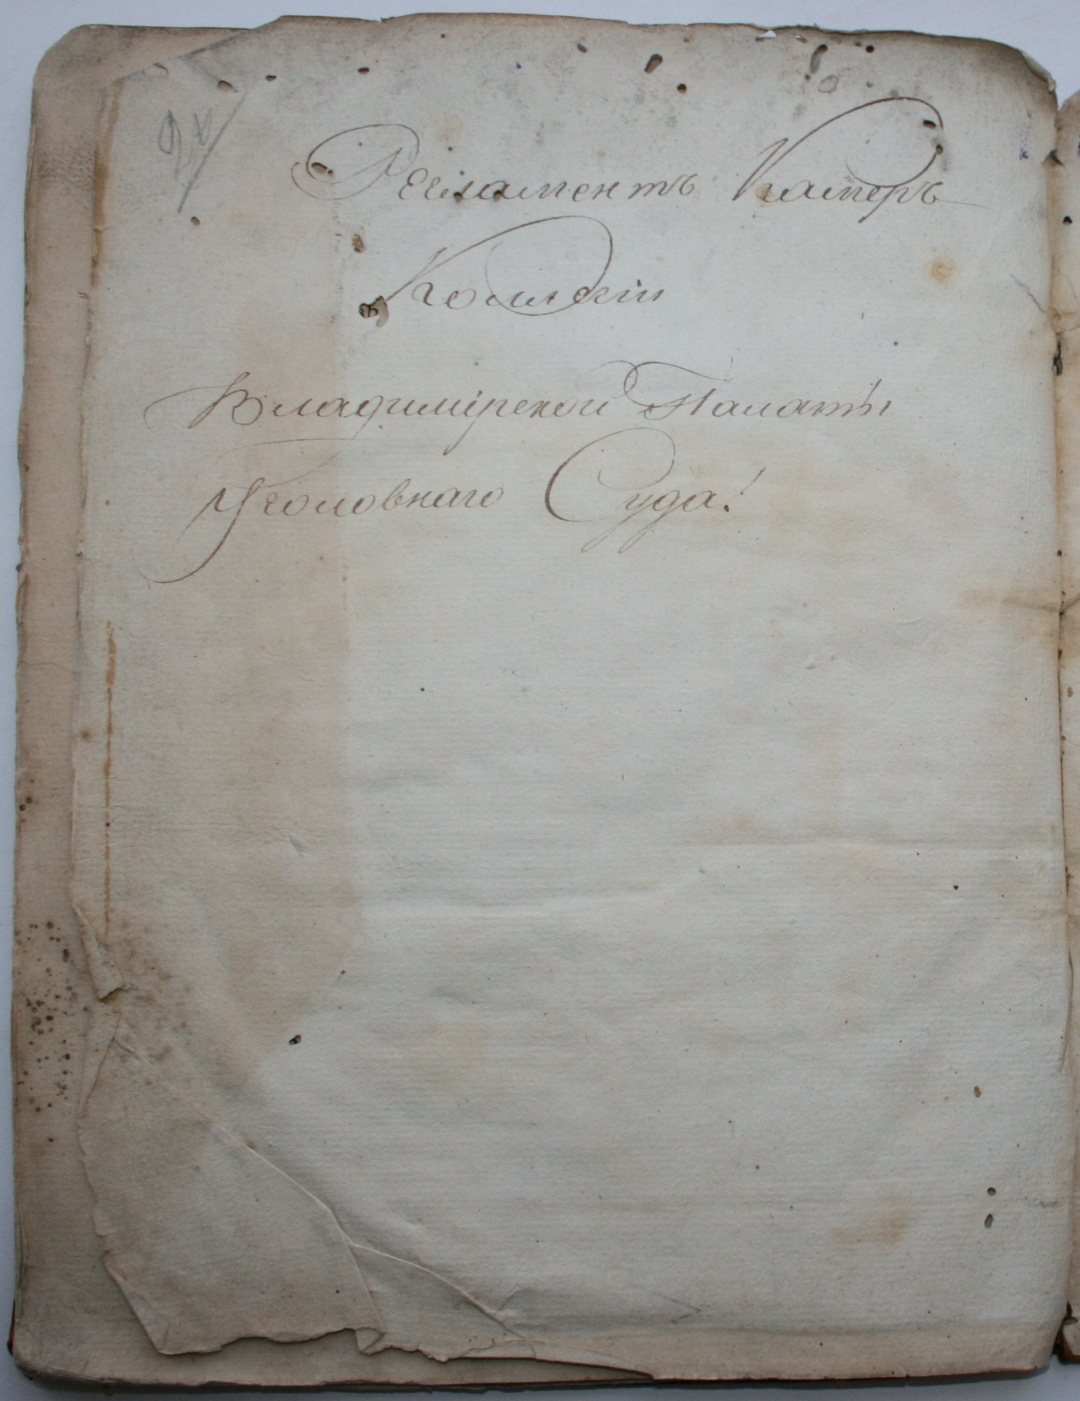 Регламентъ Камеръ
Коллегіи
Владимірской Палаты
Уголовнаго Суда!